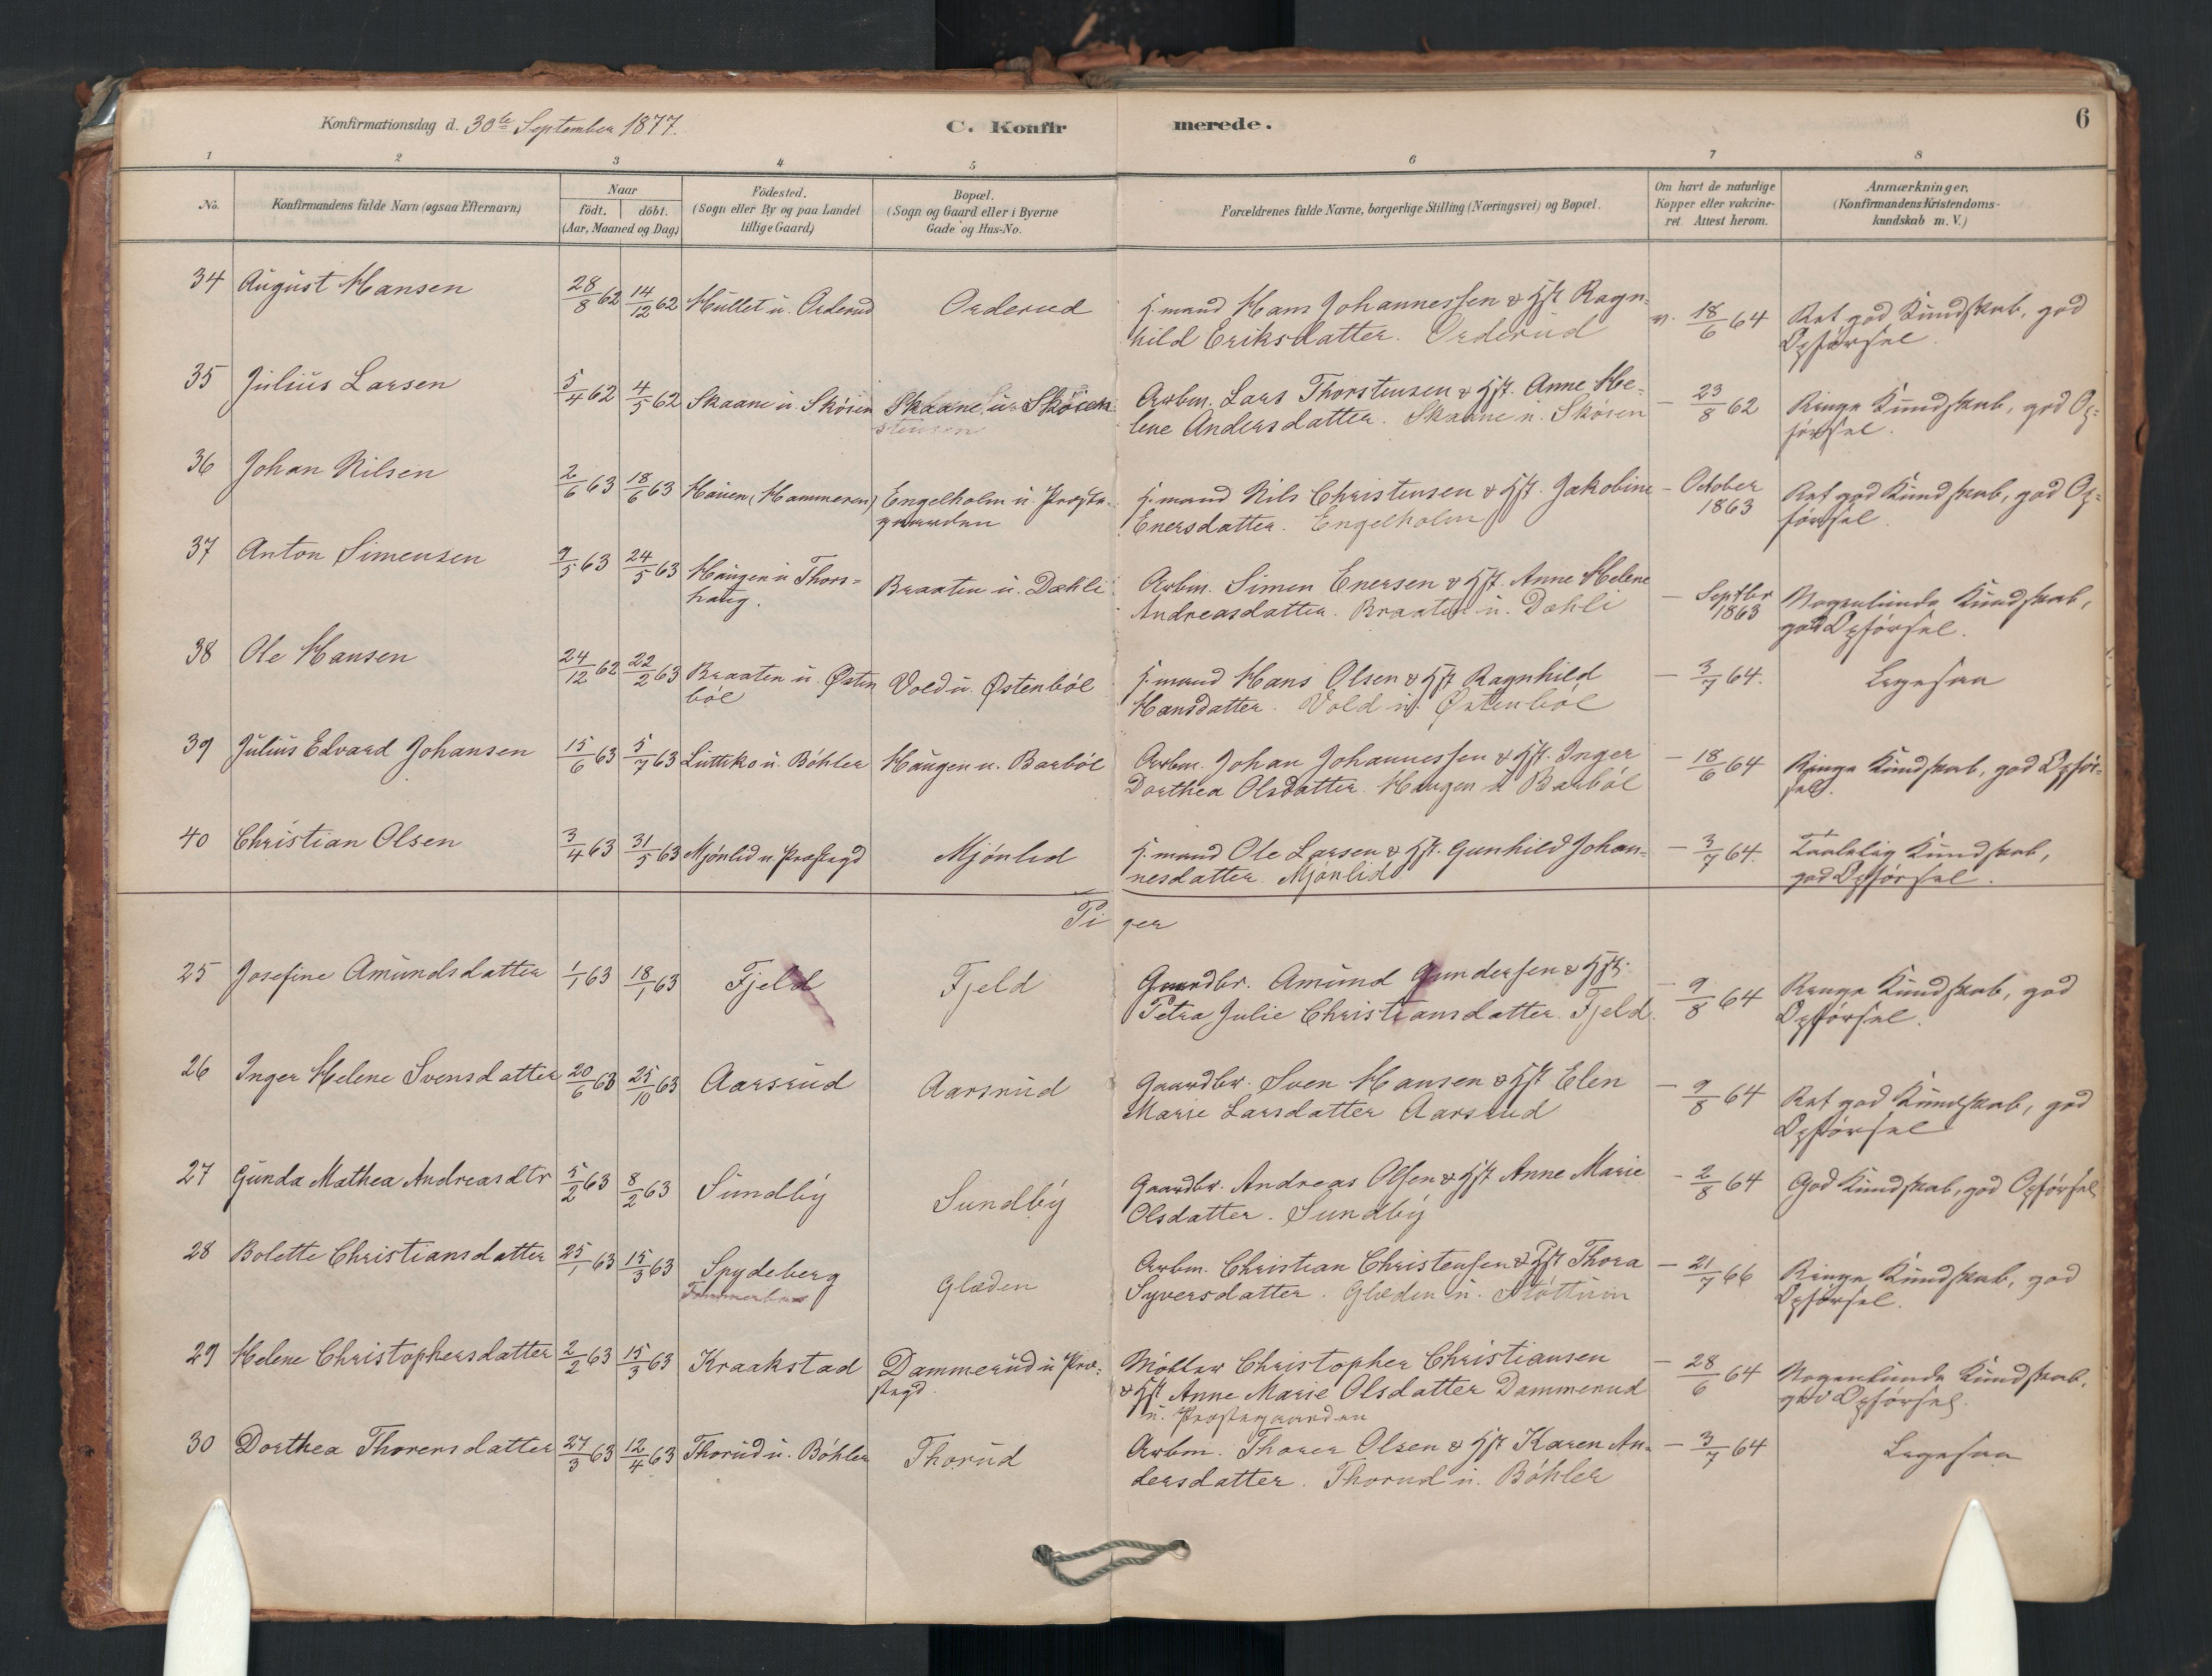 Konfirmationsdag d. 30te September 1877.
C. Konfirmerede.
6
1 2 3 4 5 6 7 8
No.
Konfirmandens fulde Navn (ogsaa Efternavn)
Naar
födt. döbt.
(Aar, Maaned og Dag)
Födested.
(Sogn eller By og paa Landet
tillige Gaard)
Bopæl.
(Sogn og Gaard eller i Byerne
Gade og Hus-No.
Forældrenes fulde Navne, borgerlige Stilling (Næringsvei) og Bopæl.
Om havt de naturlige
Kopper eller vakcine-
ret. Attest herom.
Anmærkninger,
(Konfirmandens Kristendoms-
kundskab m. V.)
34 August Hansen 28/8 62 14/12 62 Hullet u. Orderud Orderud H.mand Hans Johannessen & Hst. Ragn-
hild Eriksdatter. Orderud v. 18/6 64 Ret god Kundskab, god
Opförsel.
35 Julius Larsen 5/4 62 4/5 62 Skaane u. Skösen Skaane u. Skösen Arbm. Lars Thorstensen & Hst. Anne He-
lene Andersdatter. Skaane u. Skösen – 23/8 62 Ringe Kundskab, god Op-
försel.
36 Johan Nilsen 2/6 63 18/6 63 Hauen (Hammeren) Engelholm u. Præste-
gaarden H.mand Nils Christensen & Hst. Jakobine
Enersdatter. Engelholm – October
1863 Ret god Kundskab, god Op-
försel.
37 Anton Simensen 9/5 63 24/5 63 Haugen u Thors-
haug. Braaten u. Dæhli Arbm. Simen Enersen & Hst. Anne Helene
Andreasdatter. Braaten u. Dæhli – Septbr
1863 Nogenlunde Kundskab,
god Opförsel.
38 Ole Hansen 24/12 62 22/2 63 Braaten u. Østen
böl Vold u. Østenböl H.mand Hans Olsen & Hst Ragnhild
Hansdatter. Vold u. Østenböl – 3/7 64. Ligesaa
39 Julius Edvard Johansen 15/6 63 5/7 63 u. Böhler Haugen u. Barböl Arbm. Johan Johannessen & Hst. Inger
Dorthea Olsdatter. Haugen u Barböl – 18/6 64 Ringe Kundskab, god Opför-
sel.
40 Christian Olsen 3/4 63 31/5 63 Mjönlid u. Præstegd Mjönlid H.mand Ole Larsen & Hst. Gunhild Johan-
nesdatter. Mjönlid – 3/7 64. Taalelig Kundskab,
god Opförsel.
Piger
25 Josefine Amundsdatter 1/1 63 18/1 63 Fjeld Fjeld Gaardbr. Amund Gundersen & Hst.
Petra Julie Christiansdatter. Fjeld. – 9/8 64 Ringe Kundskab, god
Opförsel.
26 Inger Helene Svensdatter 20/6 63 25/10 63 Aarsrud Aarsrud Gaardbr. Sven Hansen & Hst Elen
Marie Larsdatter Aarsrud – 9/8 64 Ret god Kundskab, god
Opförsel
27 Gunda Mathea Andreasdtr 5/2 63 8/2 63 Sundby Sundby Gaardbr. Andreas Olsen & Hst Anne Marie
Olsdatter. Sundby – 2/8 64 God Kundskab, god Opförsel
28 Bolette Christiansdatter 25/1 63 15/3 63 Spydeberg
Glæden Arbm. Christian Christensen & Hst Thora
Syversdatter. Glæden u. – 21/7 66 Ringe Kundskab, god
Opförsel.
29 Helene Christophersdatter 2/2 63 15/3 63 Kraakstad Dammerud u Præ-
stegd. Möller Christopher Christiansen
& Hst Anne Marie Olsdatter Dammerud
u. Præstegaarden – 28/6 64 Nogenlunde Kundskab,
god Opförsel.
30 Dorthea Thorersdatter 27/3 63 12/4 63 Thorud u. Böhler Thorud Arbm. Thorer Olsen & Hst Karen An-
dersdatter. Thorud u. Böhler – 3/7 64 Ligesaa